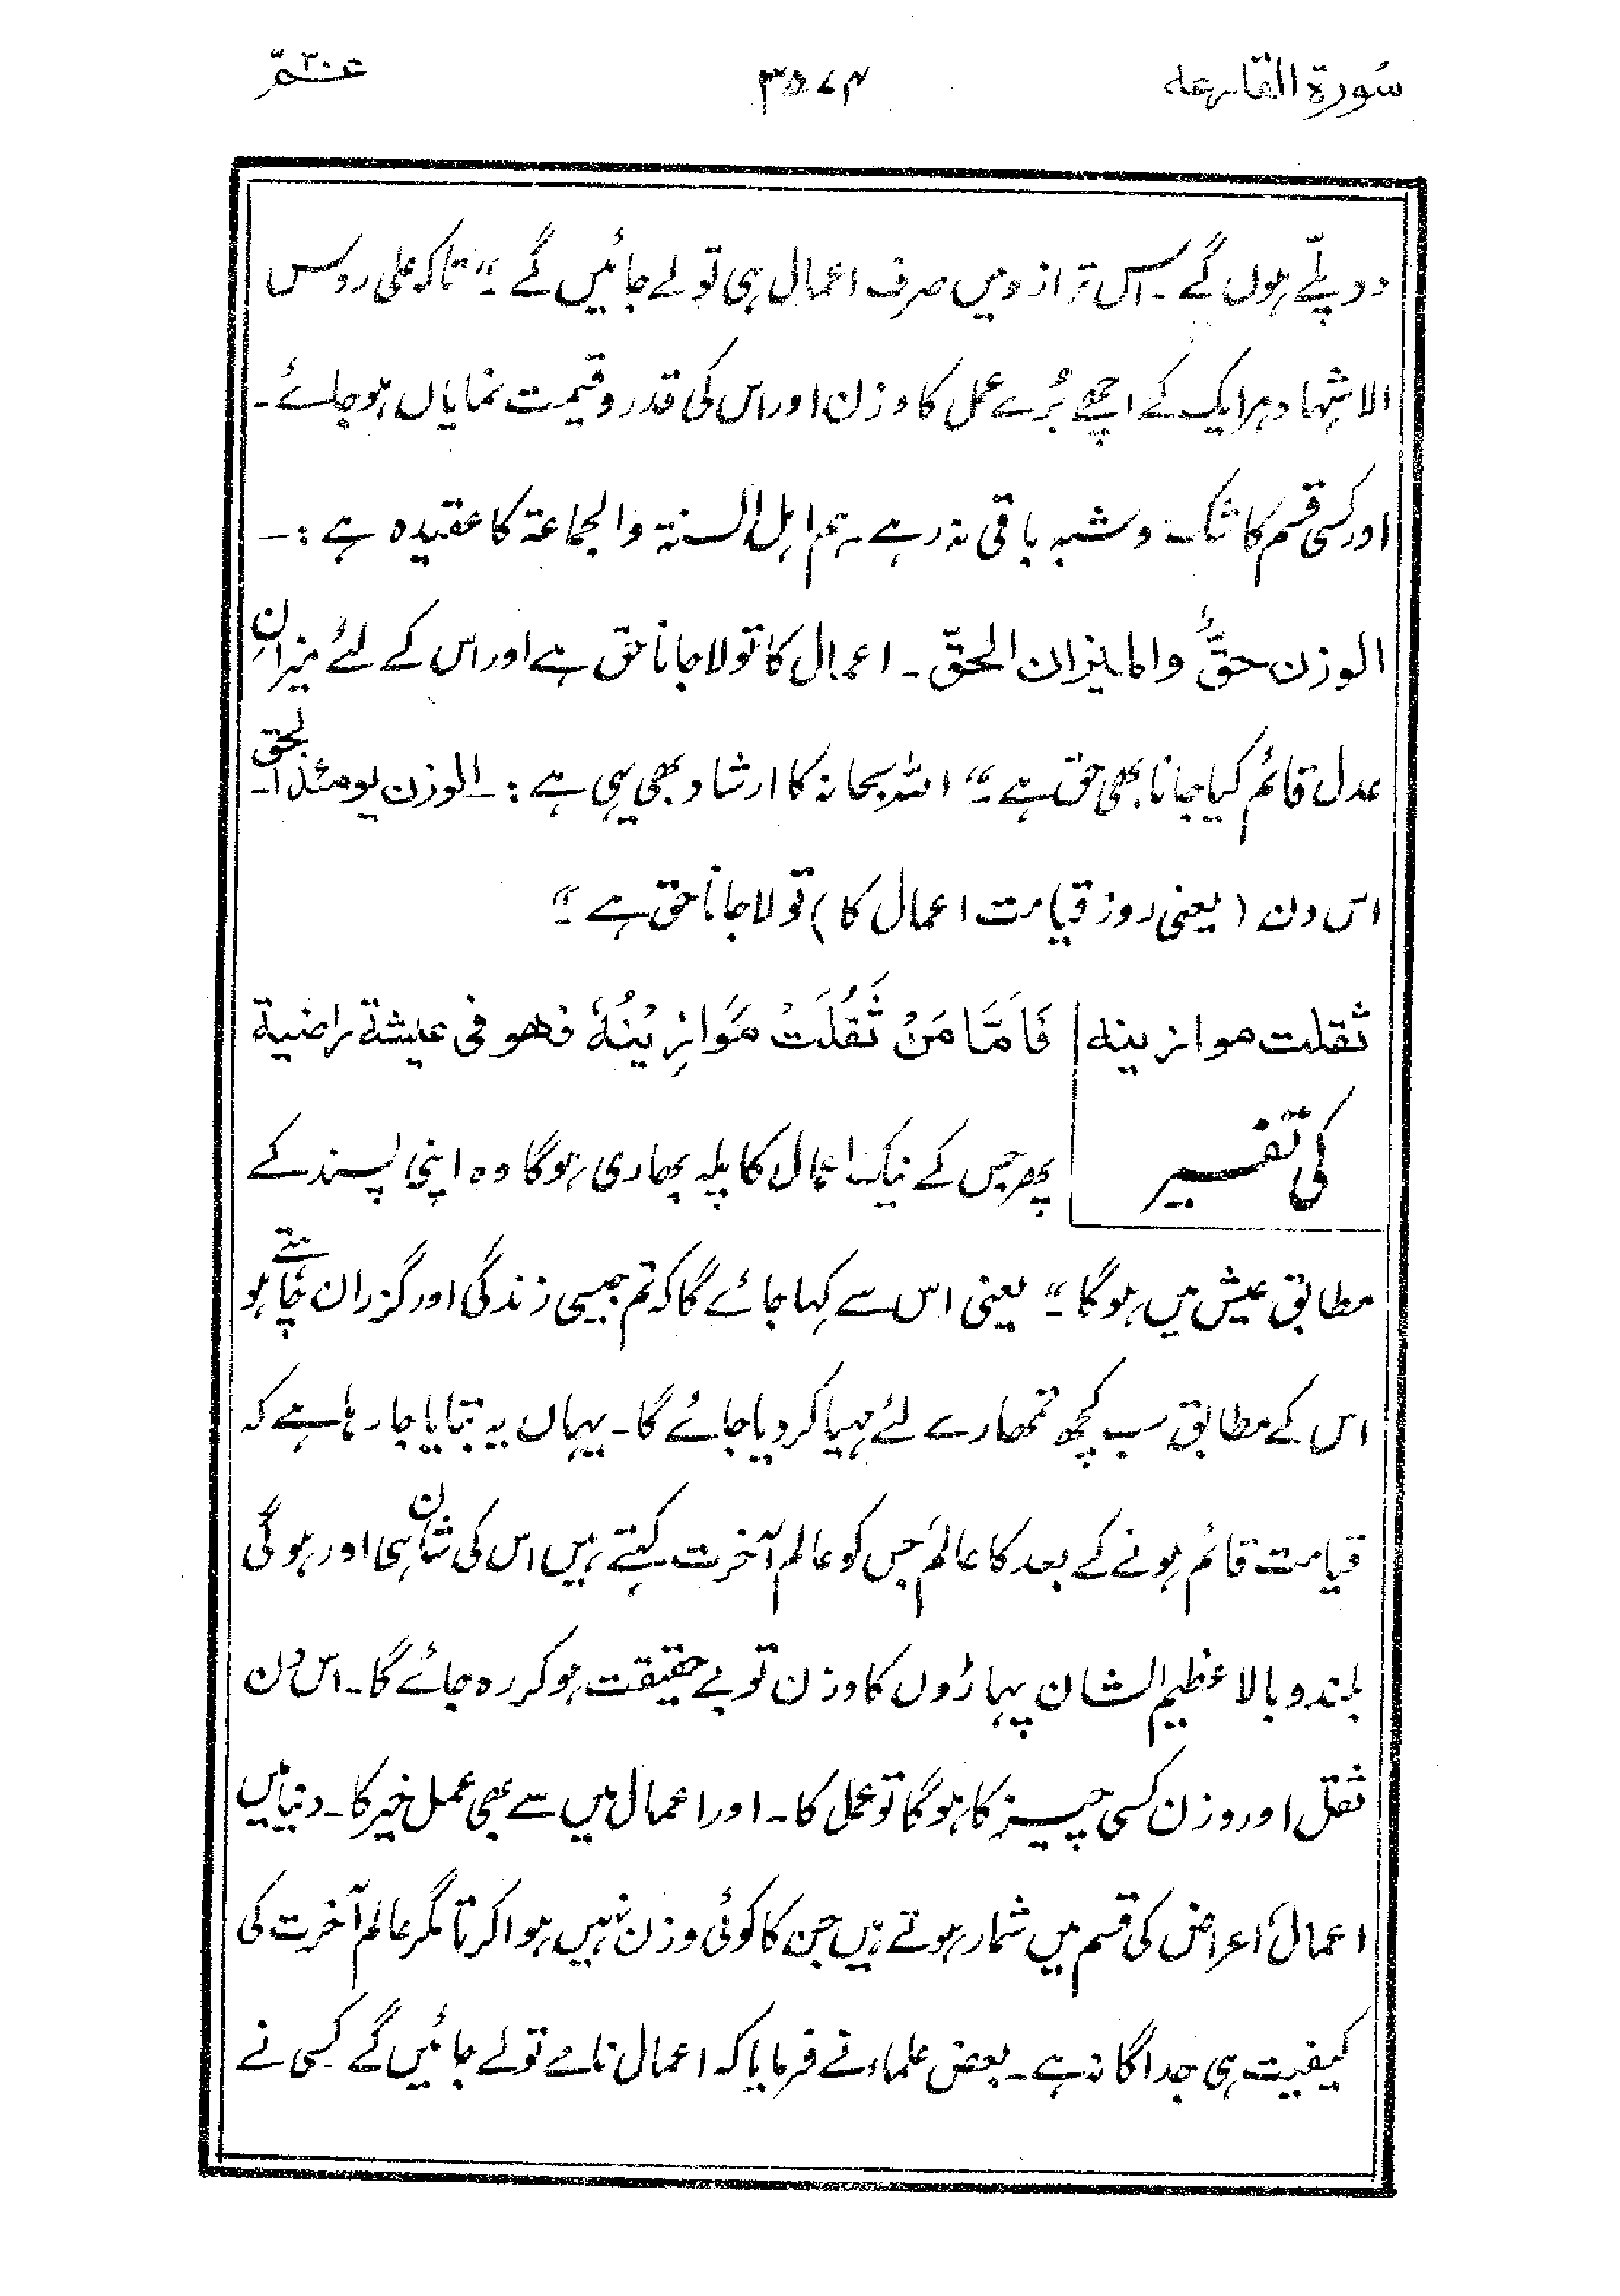 سورة القارعہ ۳۵۷۴ عمّ ۳۰
دو پلّے ہوں گے۔ اس ترازو میں صرف اعمال ہی تولے جائیں گے۔" تاکہ علی روس
الاشہاد ہر ایک کے اچھے بُرے عمل کا وزن اور اس کی قدر و قیمت نمایاں ہو جائے۔
اور کسی قسم کا شک و شبہ باقی نہ رہے۔ ہم اہل السنۃ والجماعۃ کا عقیدہ ہے :۔
الوزن حقٌّ والمیزان الحقّ۔ اعمال کا تولا جانا حق ہے اور اس کے لئے میزانِ
عدل قائم کیا جانا بھی حق ہے۔" اللہ سبحانہ کا ارشاد بھی یہی ہے :۔ الوزن یومئذ الحق
اس دن (یعنی روز قیامت اعمال کا) تولا جانا حق ہے۔"
ثقلت موازینہ | فَاَمَّا مَنْ ثَقُلَتْ مَوَازِیْنُہٗ فھو فی عیشۃ راضیۃ
کی تفسیر | پھر جس کے نیک اعمال کا پلہ بھاری ہوگا وہ اپنی پسند کے
مطابق عیش میں ہوگا۔" یعنی اس سے کہا جائے گا کہ تم جیسی زندگی اور گزران چاہتے ہو
اس کے مطابق سب کچھ تمھارے لئے مہیا کر دیا جائے گا۔ یہاں یہ بتایا جا رہا ہے کہ
قیامت قائم ہونے کے بعد کا عالَم جس کو عالم آخرت کہتے ہیں اس کی شان ہی اور ہوگی
بلند و بالا عظیم الشان پہاڑوں کا وزن تو بے حقیقت ہو کر رہ جائے گا۔ اس دن
ثقل اور وزن کسی چیز کا ہوگا تو عمل کا۔ اور اعمال میں سے بھی عمل خیر کا۔ دنیا میں
اعمال اَعراض کی قسم میں شمار ہوتے ہیں جن کا کوئی وزن نہیں ہوا کرتا مگر عالم آخرت کی
کیفیت ہی جداگانہ ہے۔ بعض علماء نے فرمایا کہ اعمال نامے تولے جائیں گے کسی نے